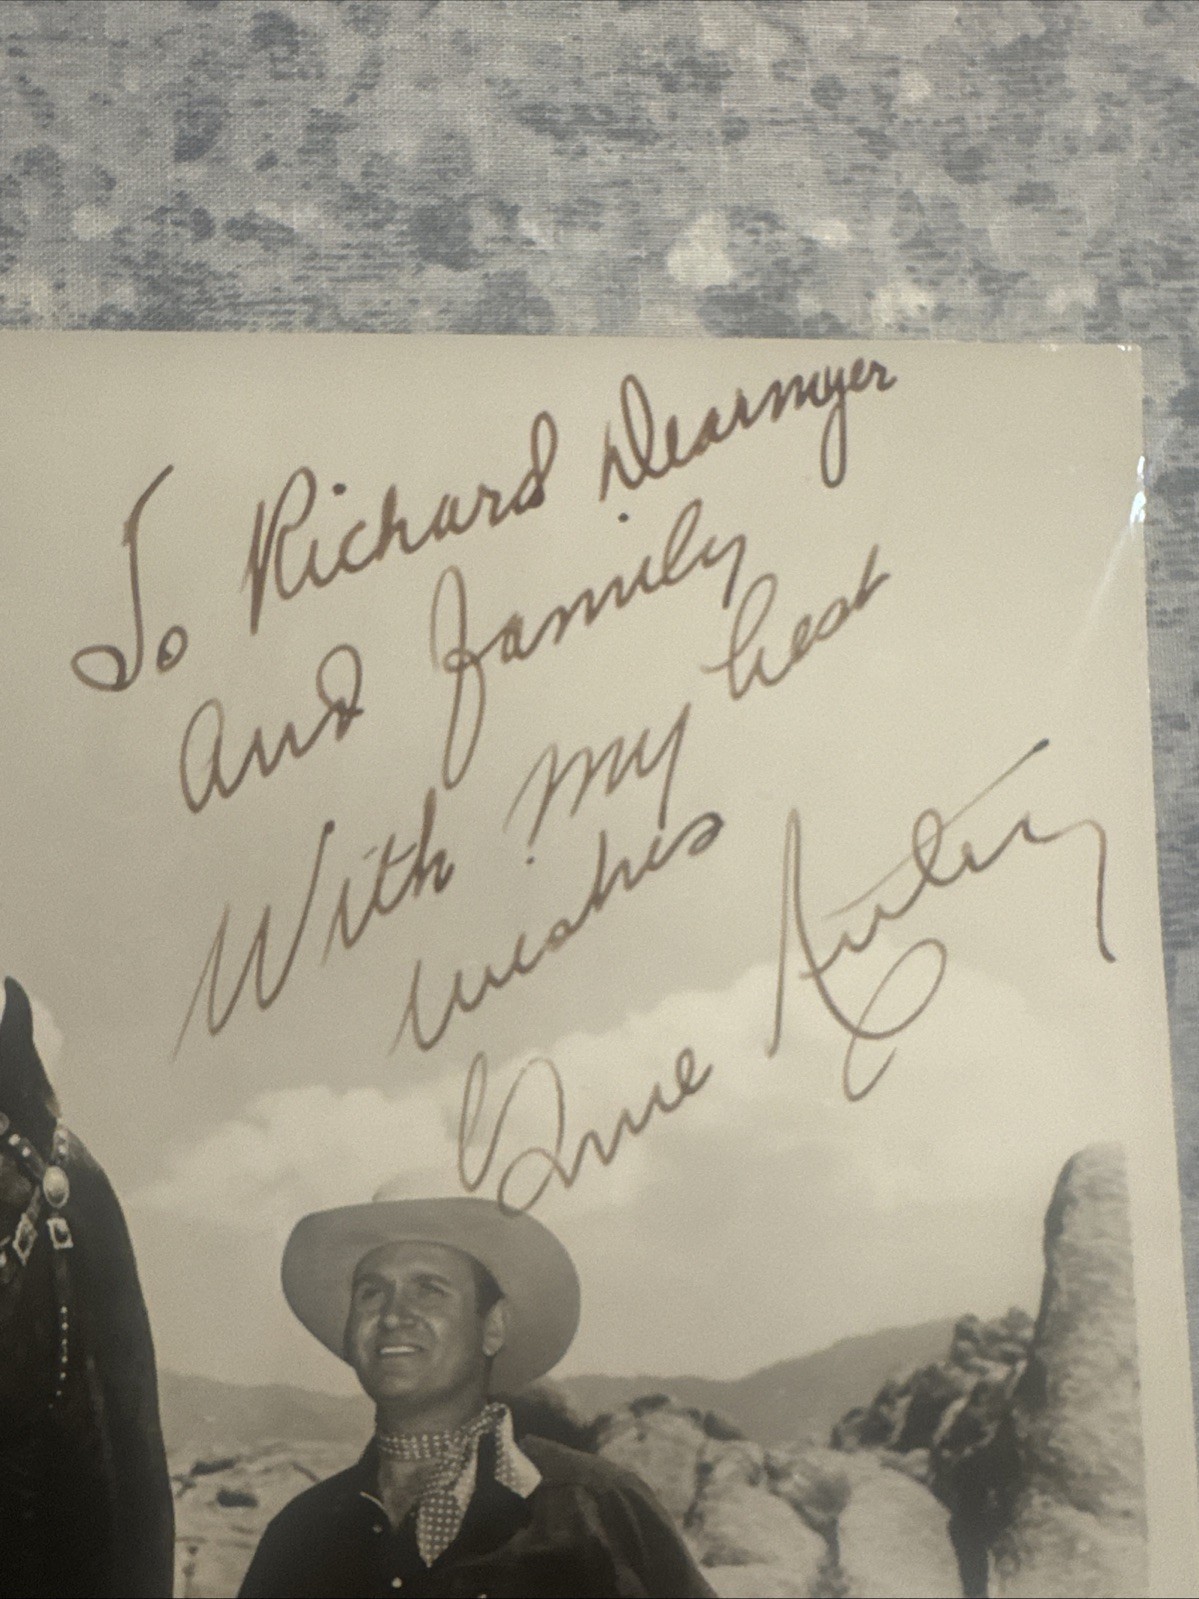 To Richard Dearmyer
and family
With my best
wishes
Gene Autry